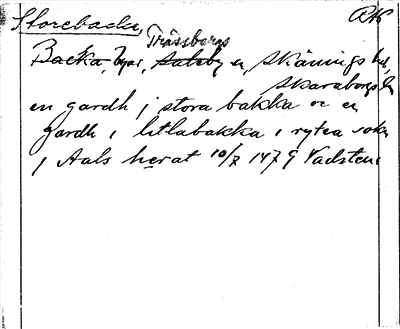 Storebacka, AK
Trässbergs
Backa, Saleby sn, Skånings hd,
Skaraborgs l
en gardh j stora bakka oc en
gardh i litlabakka i rytea sokn
j Aals herat 10/7 1479 Vadstena